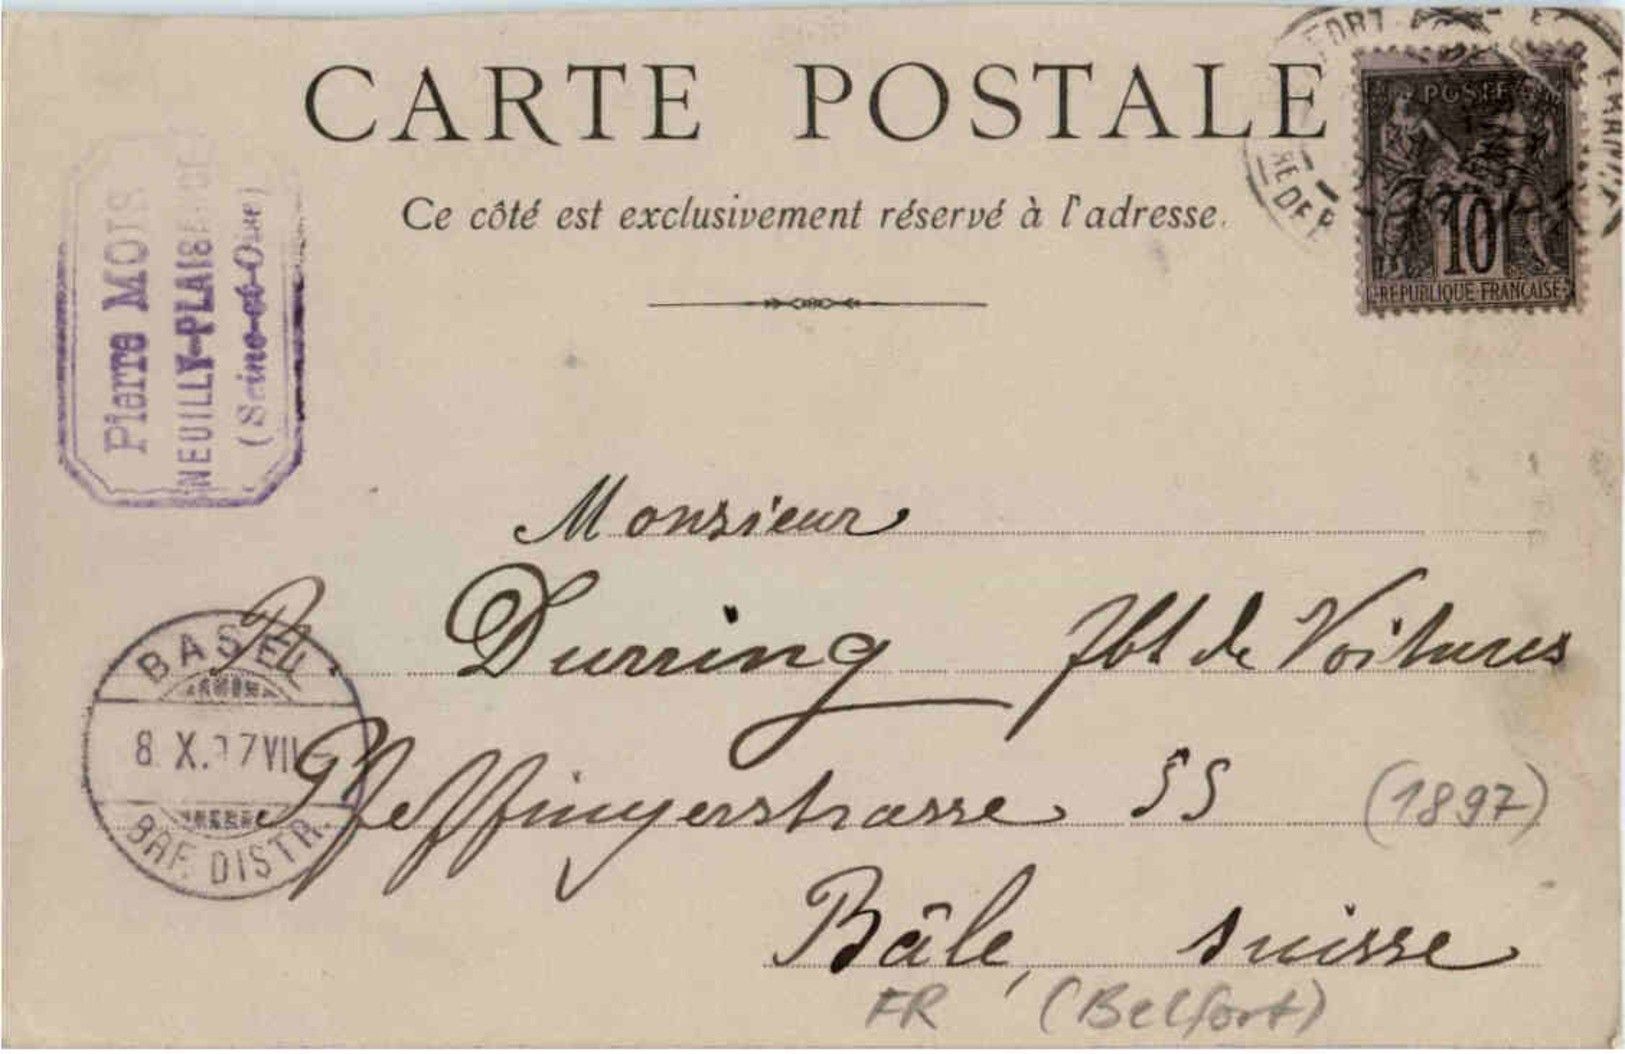 CARTE POSTALE
Ce côté est exclusivement réservé à l'adresse.
POSTES
10
REPUBLIQUE FRANÇAISE
Pierre
NEUILLY-PLAISANCE
(Seine-et-Oise)
Monsieur
Durring fbt de Voitures
Pfeffingerstrasse 55
(1897)
Bâle, suisse
FR (Belfort)
BASEL
8. X. 97 VII
BRF. DISTR.